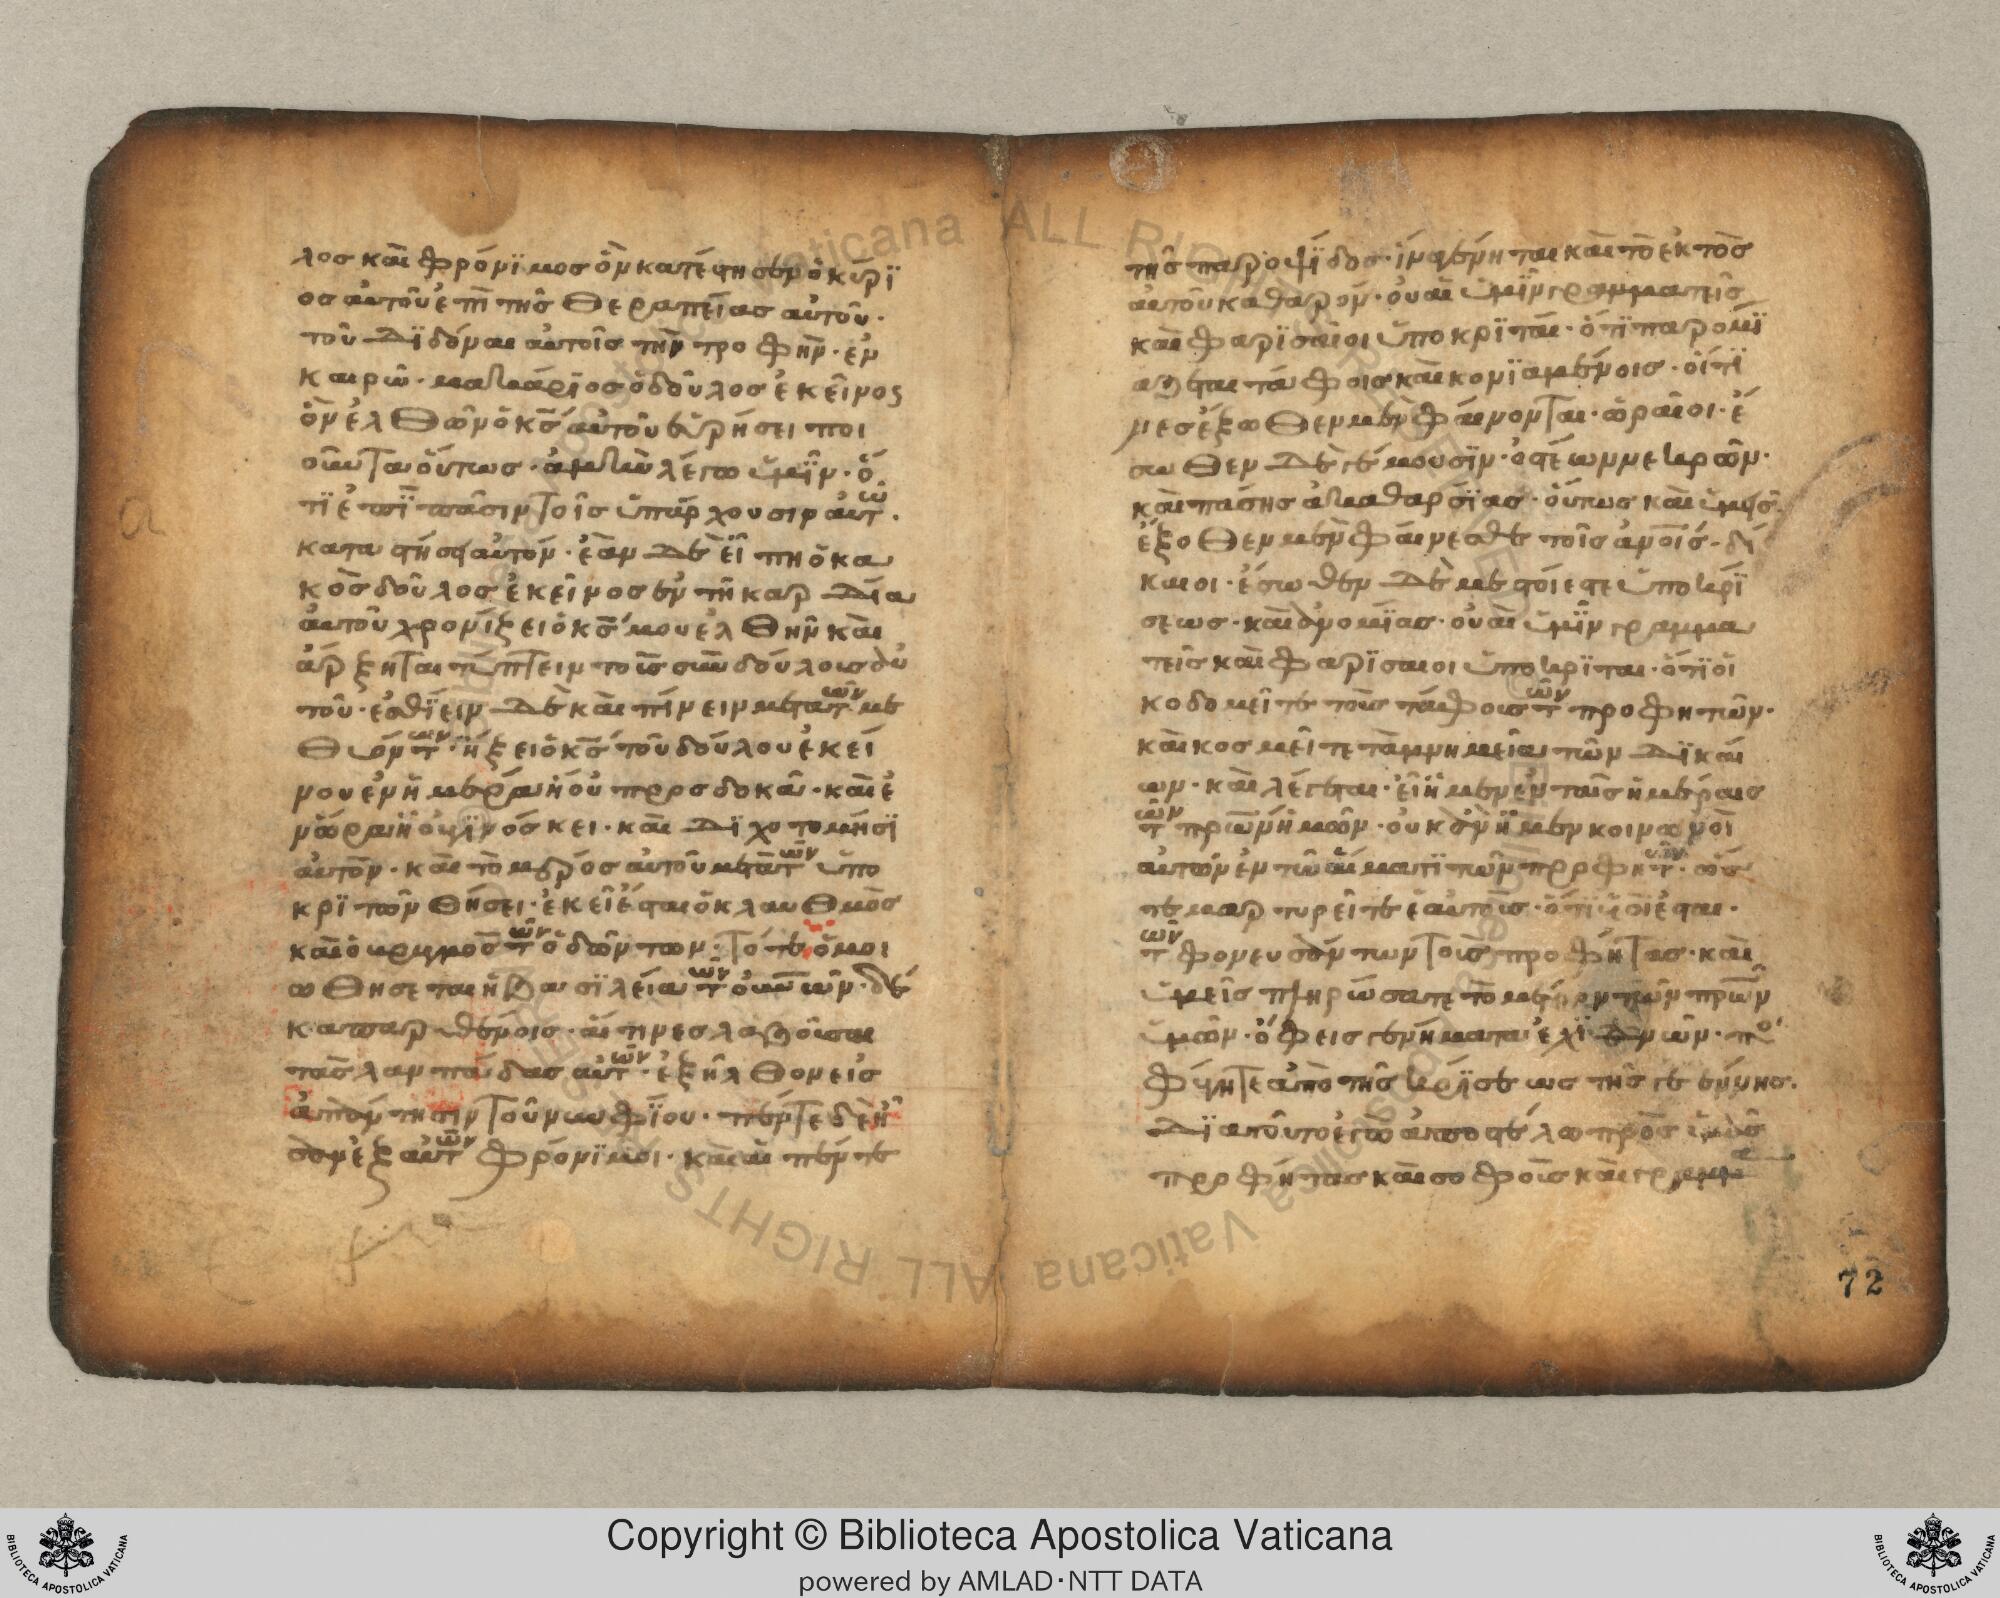 λος καὶ φρόνϊμος ὃν κατέστησεν ὁ κύρϊ
ος αὐτοῦ ἐπὶ τῆς θεραπείας αὐτοῦ·
τοῦ δϊδόναι αὐτοῖς τὴν τροφὴν· ἐν
καιρῶ· μακάρϊος ὁ δοῦλος ἐκεῖνος
ὃν ἐλθὼν ὁ κς αὐτοῦ εὑρήσει ποι
οῦντα οὕτως· ἀμὴν λέγω ὑμῖν· ὅ
τϊ ἐπϊ πᾶσιν τοῖς ὑπάρχουσιν αὐτῶ·
καταστήσει αὐτόν· ἐὰν δὲ εἴπη ὁ κα
κὸς δοῦλος ἐκεῖνος ἐν τῆ καρδία
αὐτοῦ χρονίζει ὁ κς μου ἐλθῆν καὶ
ἄρξηται τύπτειν τοῖς συνδούλοις αὐ
τοῦ· ἐσθίειν δὲ καὶ πίνειν μετὰ τῶν με
θυόντων· ἥξει ὁ κς τοῦ δούλου ἐκεί
νου ἐν ἡμέρα ἧ οὐ προσδοκᾶ· καὶ ἐ
ν ὥρα ἧ οὐ γϊνόσκει· καὶ δϊχοτομήσϊ
αὐτὸν· καὶ τὸ μέρος αὐτοῦ μετὰ τῶν ὑπο
κρϊτῶν θήσει· ἐκεῖ ἔσται ὁ κλαυθμὸς
καὶ ὁ βρυγμὸς τῶν ὀδώντων· Τότε ὁμοι
ωθήσεται ἡ βασϊλεία τῶν οὐνῶν· δέ
κα παρθένοις· αἵτινες λαβοῦσαι
τὰς λαμπάδας αὐτῶν· ἐξῆλθον εἰς
ἀπάντησιν τοῦ νυμφίου· πέντε δὲ ἦ
σαν ἐξ αὐτῶν φρόνϊμοι· καὶ αἱ πέντε
τῆς παροψΐδος· ἵνα γένηται καὶ τὸ ἐκτὸς
αὐτοῦ καθαρόν· οὐαὶ ὑμῖν γραμματεῖς
καὶ φαρϊσαῖοι ὑποκρϊταί· ὅτϊ παρομϊ
άζεται τάφοις κεκονϊαμένοις· οἵτϊ
νες ἔξωθεν μὲν φαίνονται· ὡραῖοι· ἔ
σωθεν δὲ γέμουσϊν· ὀστέων νεκρῶν·
καὶ πάσης ἀκαθαρσϊας· οὕτως καὶ ὑμεῖς
ἔξοθεν μὲν φαίνεσθε τοῖς ἀνοις· δί
καιοι· ἔσωθεν δὲ μεστοί ἐστε ὑποκρί
σεως· καὶ ἀνομίας· οὐαὶ ὑμῖν γραμμα
τεῖς καὶ φαρϊσαιοι ὑποκρϊται· ὅτϊ οἰ
κοδομεῖτε τοὺς τάφους τῶν προφητῶν·
καὶ κοσμεῖτε τὰ μνημεῖα τῶν δϊκαί
ων· καὶ λέγεται· εἰ ἤμεν ἐν ταῖς ἡμέραις
τῶν πρων ἡμῶν· οὐκ ἂν ἤμεν κοινωνοὶ
αὐτῶν ἐν τῶ αἵματϊ τῶν προφητῶν· ὥς
τε μαρτυρεῖτε ἑαυτοῖς· ὅτϊ υἱοί ἐσται·
τῶν φονευσάντων τοὺς προφήτας· καὶ
ὑμεῖς πληρώσατε τὸ μέτρον τῶν πρων
ὑμῶν· ὄφεις γενήματα ἐχϊδνῶν· πο
φύγητε ἀπὸ τῆς κρϊσεως τῆς γεέννης·
Δϊατοῦτο ἐγὼ ἀποστέλω πρὸς ὑμᾶς
προφήτας καὶ σοφοὺς καὶ γραμμα
72
Copyright © Biblioteca Apostolica Vaticana
powered by AMLAD·NTT DATA